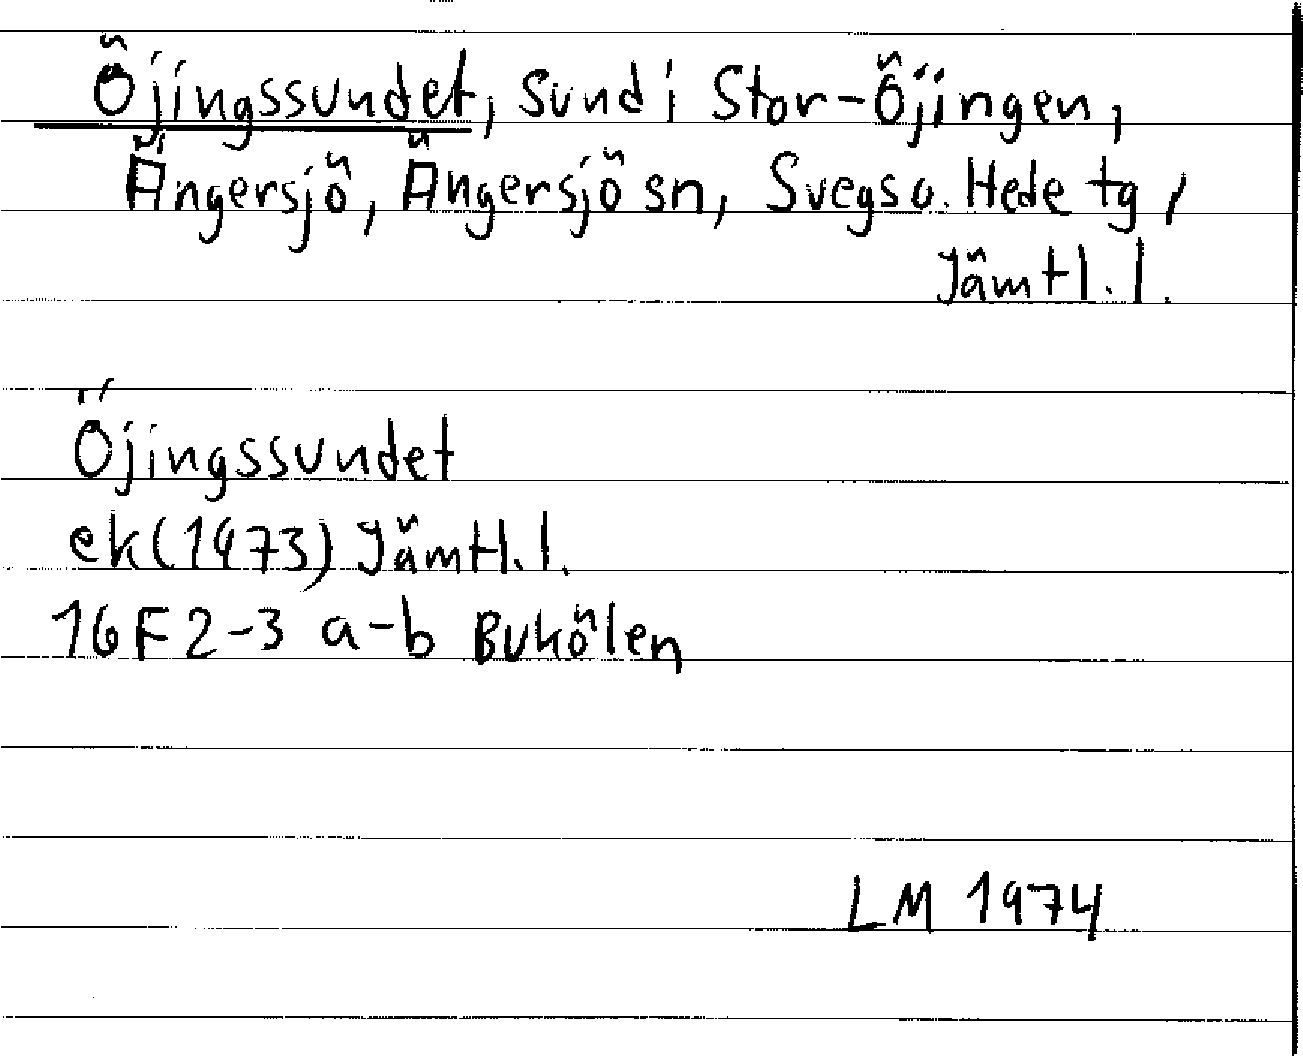 Öjingssundet, sund i Stor-Öjingen,
Ängersjö, Ängersjö sn, Svegs o. Hede tg,
Jämtl. l.
Öjingssundet
ek (1973) Jämtl. l.
16 F 2-3 a-b Bukölen
LM 1974